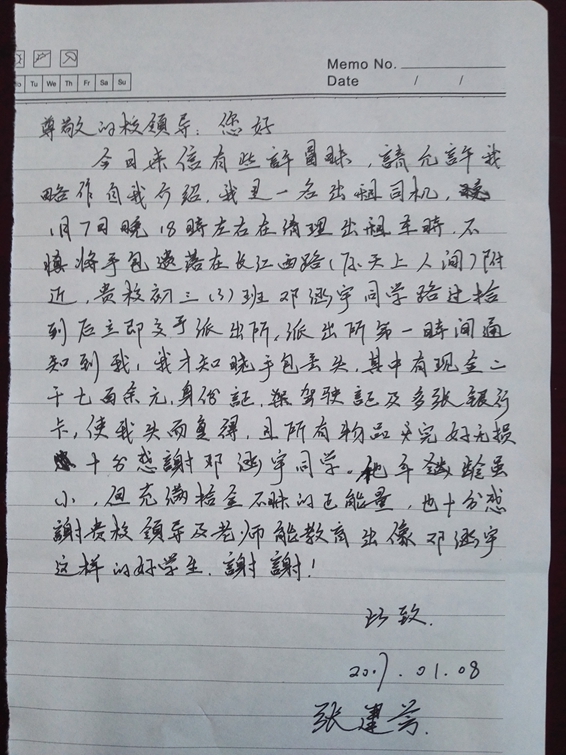 Memo No.
Mo Tu We Th Fr Sa Su
Date / /
尊敬的校领导：您好
今日来信有些許冒昧，請允許我
略作自我介绍，我是一名出租司机，
1月7日晚18時左右在清理出租车時，不
慎将手包遗落在长江西路（原天上人间）附
近，贵校初三（3）班邓涵宇同学路过捡
到后立即交予派出所，派出所第一時间通
知到我，我才知晓手包丢失，其中有现金二
千七百余元，身份証，驾駛証及多张银行
卡，使我失而复得，且所有物品完好无损
十分感謝邓涵宇同学。他年龄虽
小，但充满拾金不昧的正能量，也十分感
謝贵校领导及老师能教育出像邓涵宇
这样的好学生，謝謝！
此致.
2017.01.08
张建芳.